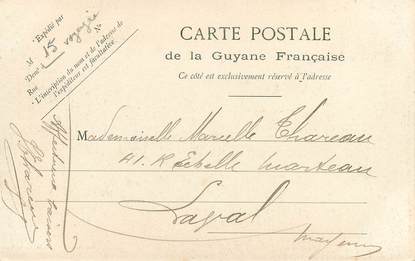 CARTE POSTALE
de la Guyane Française
Ce côté est exclusivement réservé à l'adresse
Expédié par
M
Demt
Rue N°
L'inscription du nom et de l'adresse de
l'expéditeur est facultative
15 voyagé
Mademoiselle Marcelle Thareau
41. R Echelle Marteau
Laval
Mayenne
Affectueux baisers